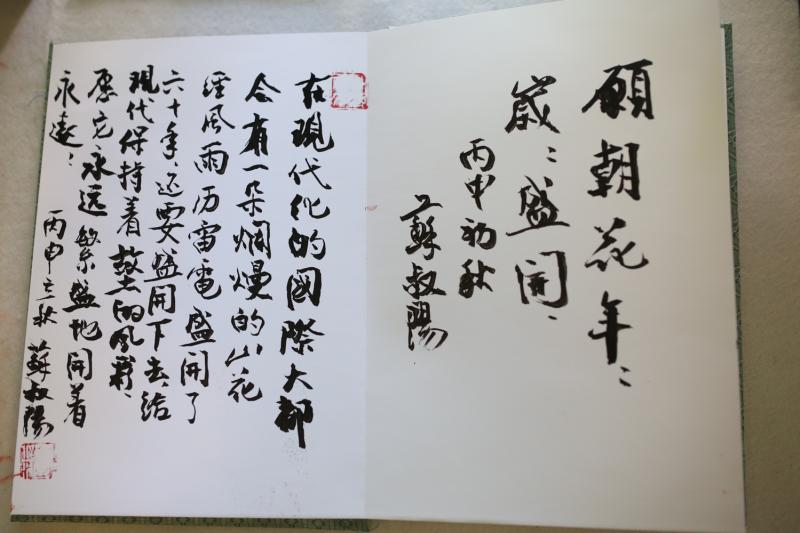 願朝花年〻
歲〻盛開、
丙申初秋
蘇叔陽
在現代化的國際大都
会有一朵爛熳的山花
経風雨历雷電盛開了
六十年、还要盛開下去给
現代保持着的风彩、
愿它永远繁盛地開着
永遠〻
丙申立秋 蘇叔陽